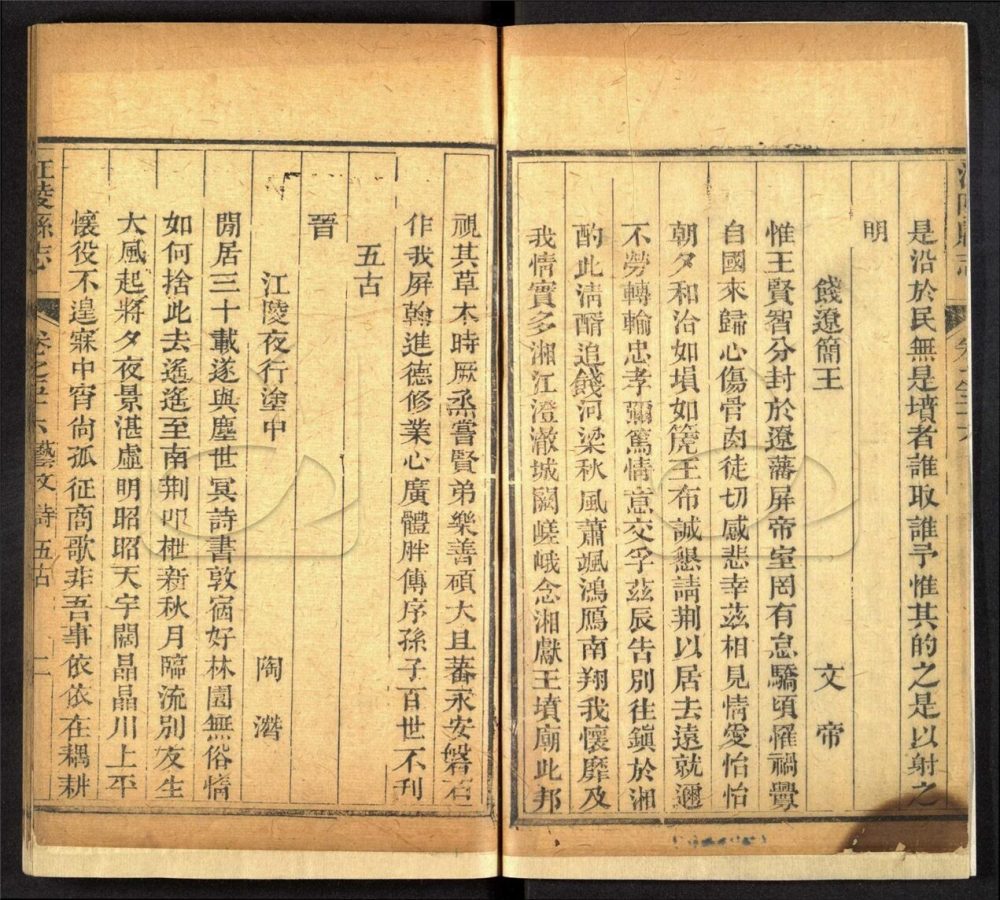 是沿於民無是墳者誰取誰予惟其的之是以射之
明
餞遼簡王 文帝
惟王賢智分封於遼藩屏帝室罔有怠驕頃罹禍釁
自國來歸心傷骨肉徒切感悲幸茲相見情愛怡怡
朝夕和洽如塤如箎王布誠懇請荆以居去遠就邇
不勞轉輸忠孝彌篤情意交孚茲辰告別往鎮於湘
酌此清酳追餞河梁秋風蕭颯鴻鴈南翔我懷靡及
我情實多湘江澄澈城闕嵯峨念湘獻王墳廟此邦
視其草木時厥烝嘗賢弟樂善碩大且蕃永安磐石
作我屏翰進德修業心廣體胖傳序孫子百世不刊
五古
晉
江陵夜行塗中 陶潛
閒居三十載遂與塵世冥詩書敦宿好林園無俗情
如何捨此去遙遙至南荆叩枻新秋月臨流別友生
大風起將夕夜景湛虛明昭昭天宇闊晶晶川上平
懷役不遑寐中宵尙孤征商歌非吾事依依在耦耕
江陵縣志 卷之五十六 藝文 詩 五古 二